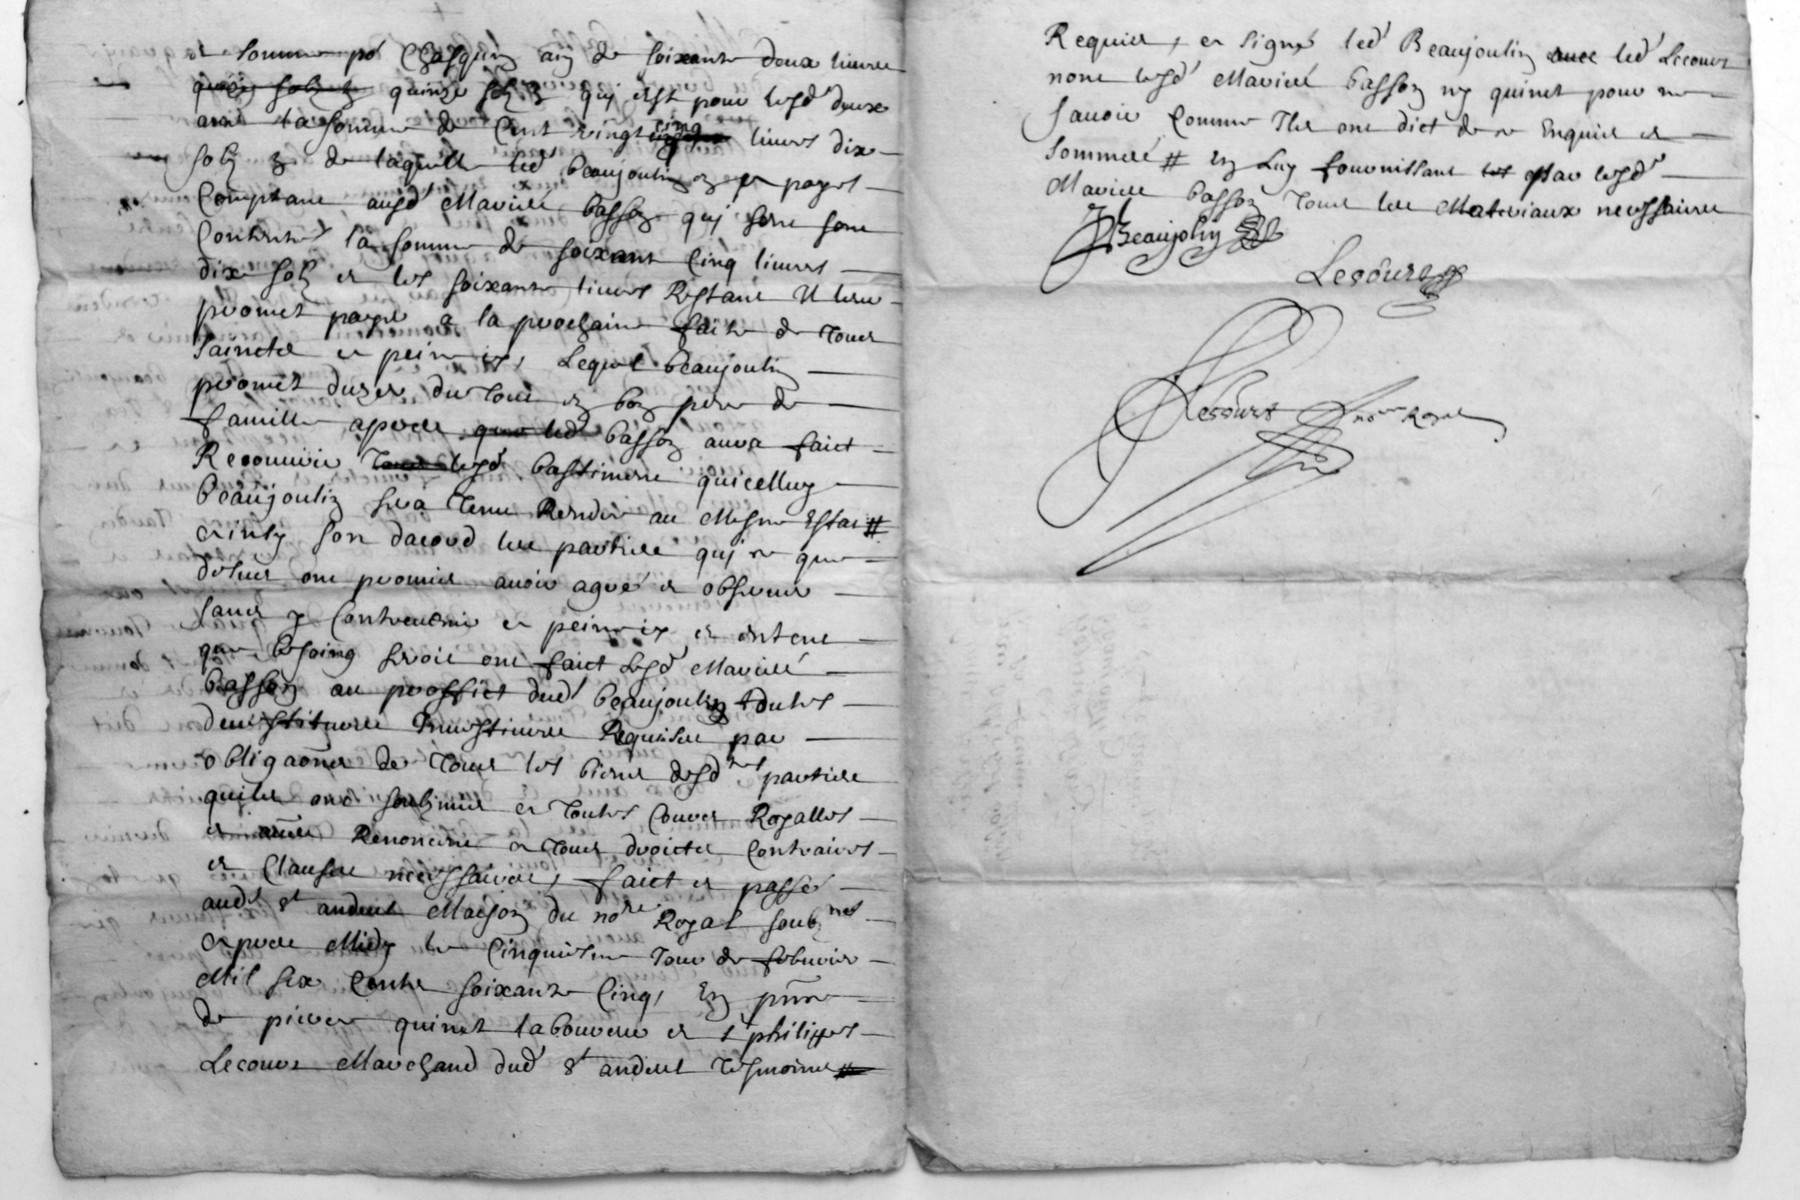 et somme po chasquung an de soixante deux livres
quinze solz qui est pour lesd deux
ans la somme de Cent vingt cinq livres dix
solz de laquelle led beaujoulin en a payé
Comptant ausd Mariés basson qui sont
Contents la somme de soixante Cinq livres
dix solz et les soixante livres Restant Il leur
promet payé a la prochaine faite de Tous
saincts et peine etc, Lequel beaujoulin
promet du tout en bon pere de
famille apres led basson aura faict
Recouvrir lesd bastimens quicelluy
beaujoulin sera tenu Rendre au Mesme Estat #
Ainsy son dacord les parties qui ce que
dessus ont promis avoir agré et observer
sans y Contrevenir et peine etc et
que besoing seroit ont faict lesd Mariés
basson au proffict dud beaujoulin toutes
devestitures Investitures Requises par
obligaons de Tous les biens desd parties
quilz ont soubzmis et toutes Cours Royalles
et Renoncent a tous droicts Contraires
et Clauses necessaires, faict et passé
aud St andeul Maison du nore Royal soubzné
apres Midy le Cinquiesme Jour de febvrier
Mil six Cents soixante Cinq, En pñce
de pierre quinet laboureur et philippes
Lecourt Marchand dud St andeul tesmoins #
Requis, et signé led Beaujoulin avec led Lecourt
non lesd Mariés basson ny quinet pour ne
savoir Comme Ilz ont dict de ce Enquis et
sommés # En Luy fournissant par lesd
Mariés basson Tous les Materiaux necessaires
JBeaujolin
Lecourt
Lecourt nore Royal